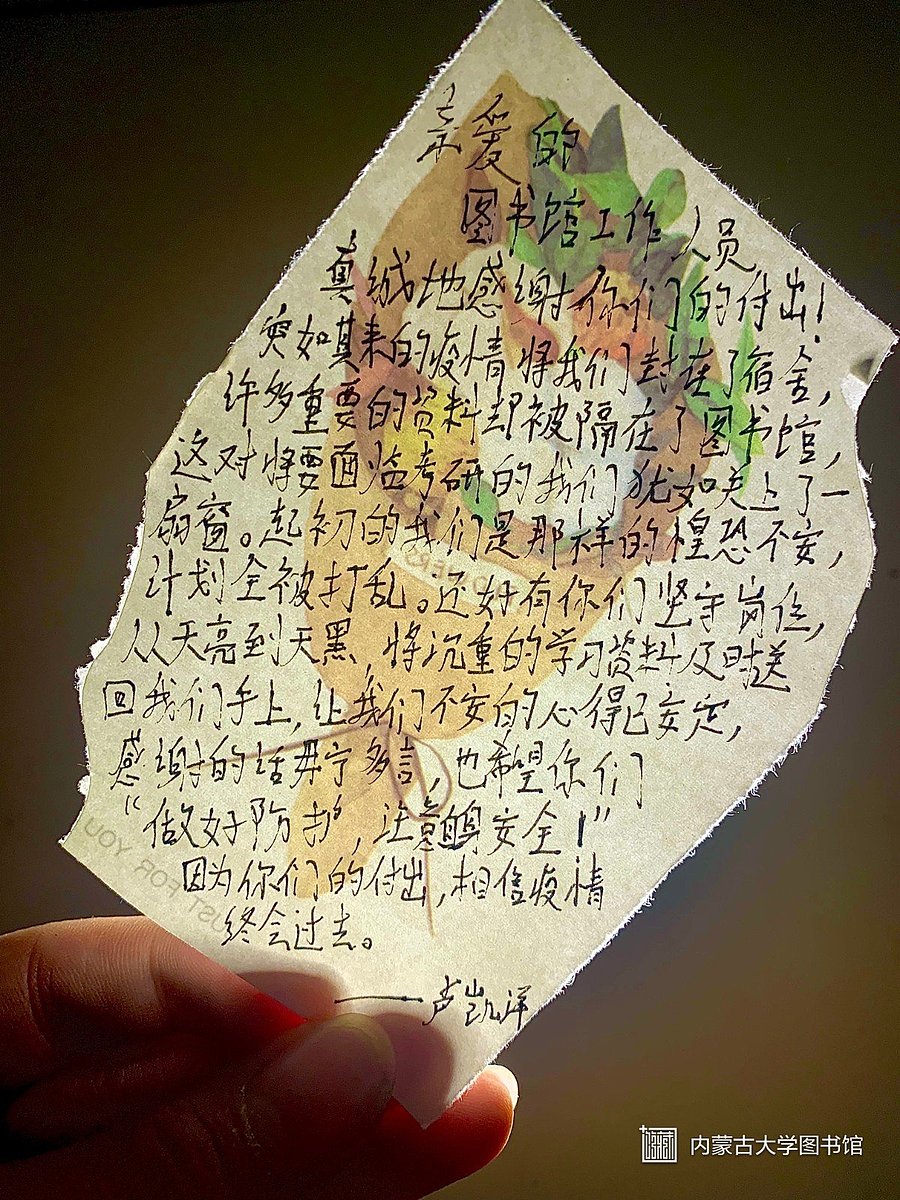 亲爱的
图书馆工作人员
真诚地感谢你们的付出！
突如其来的疫情将我们封在了宿舍，
许多重要的资料却被隔在了图书馆，
这对将要面临考研的我们犹如关上了一
扇窗。起初的我们是那样的惶恐不安，
计划全被打乱。还好有你们坚守岗位，
从天亮到天黑，将沉重的学习资料及时送
回我们手上，让我们不安的心得已安定，
感谢的话毋宁多言，也希望你们
“做好防护，注意自身安全！”
因为你们的付出，相信疫情
终会过去。
——卢凯洋
JUST FOR YOU
内蒙古大学图书馆